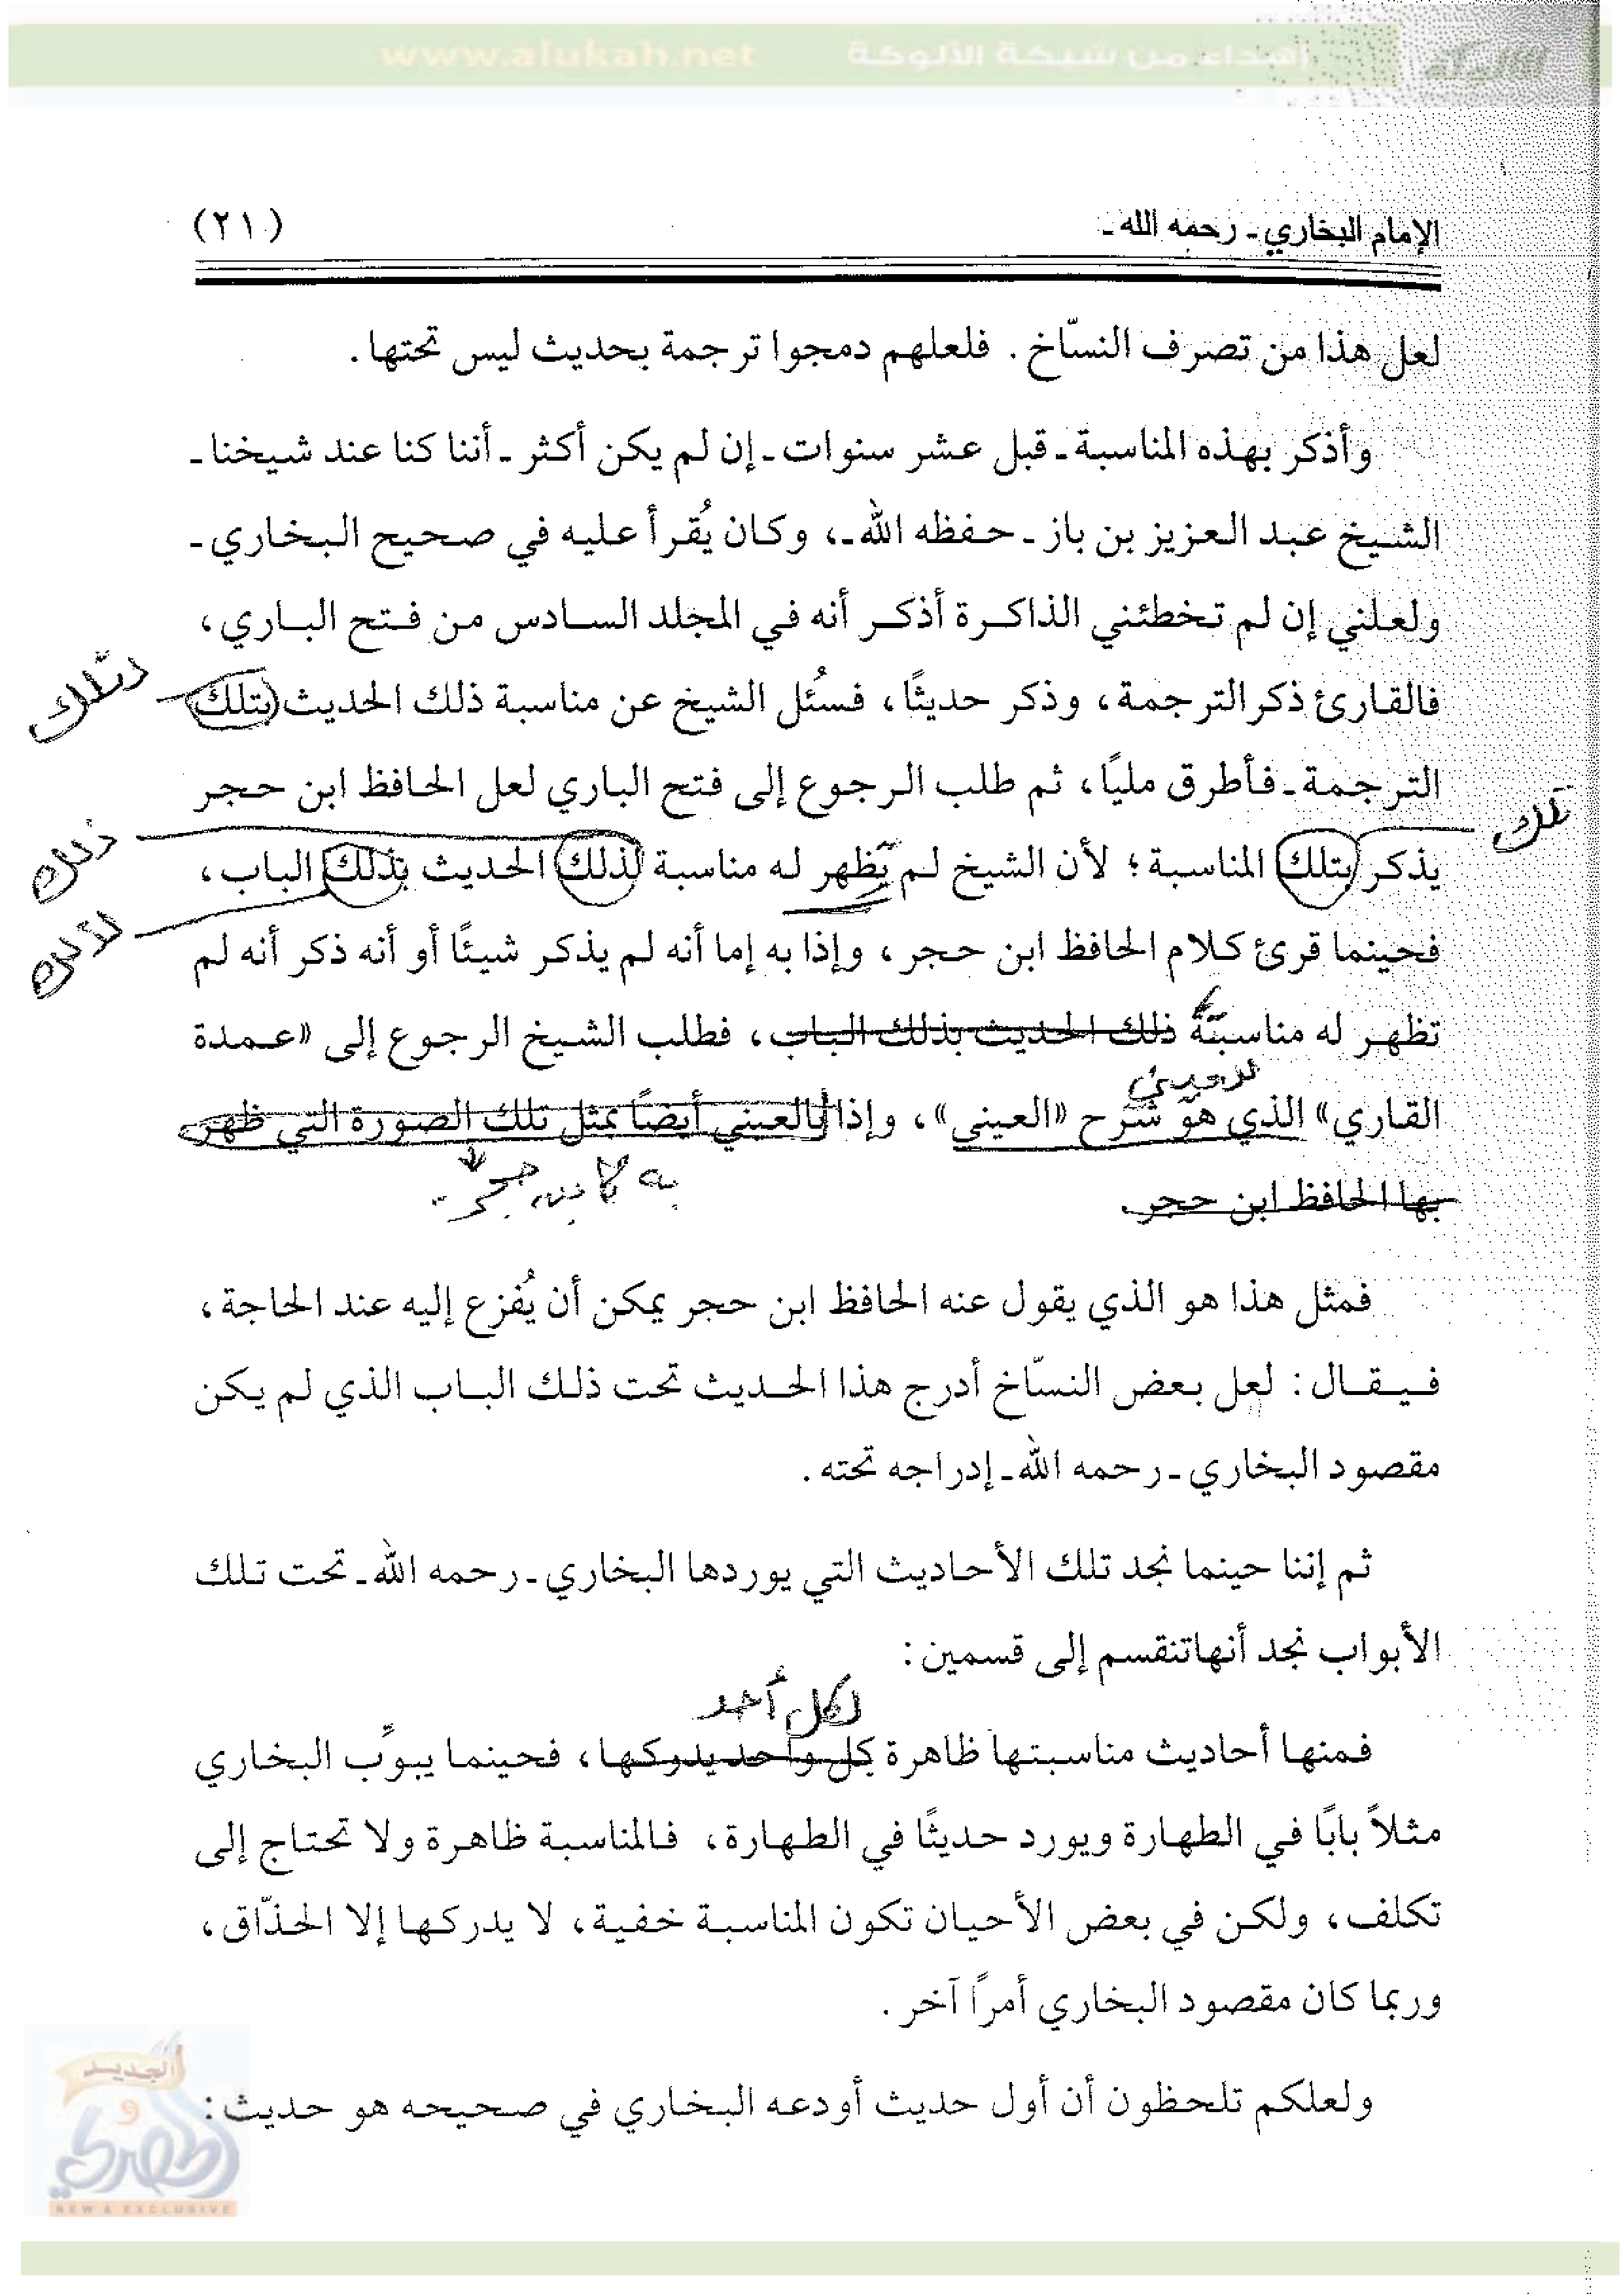 www.alukah.net إهداء من شبكة الألوكة
الإمام البخاري ـ رحمه الله ـ (٢١)
لعل هذا من تصرف النسّاخ . فلعلهم دمجوا ترجمة بحديث ليس تحتها .
وأذكر بهذه المناسبة ـ قبل عشر سنوات ـ إن لم يكن أكثر ـ أننا كنا عند شيخنا ـ
الشيخ عبد العزيز بن باز ـ حفظه الله ـ، وكان يُقرأ عليه في صحيح البخاري ـ
ولعلني إن لم تخطئني الذاكرة أذكر أنه في المجلد السادس من فتح الباري،
فالقارئ ذكر الترجمة، وذكر حديثًا، فسُئل الشيخ عن مناسبة ذلك الحديث (بتلك
الترجمة ـ فأطرق مليًا، ثم طلب الرجوع إلى فتح الباري لعل الحافظ ابن حجر
تلك
يذكر بتلك المناسبة؛ لأن الشيخ لم يظهر له مناسبة لذلك الحديث بذلك الباب،
فحينما قرئ كلام الحافظ ابن حجر، وإذا به إما أنه لم يذكر شيئًا أو أنه ذكر أنه لم
تظهر له مناسبة ذلك الحديث بذلك الباب، فطلب الشيخ الرجوع إلى «عمدة
القاري» الذي هو شرح «العيني»، وإذا بالعيني أيضًا بمثل تلك الصورة التي ظهر
للعيني
بها الحافظ ابن حجر.
فمثل هذا هو الذي يقول عنه الحافظ ابن حجر يمكن أن يُفزع إليه عند الحاجة،
فيقال: لعل بعض النسّاخ أدرج هذا الحديث تحت ذلك الباب الذي لم يكن
مقصود البخاري ـ رحمه الله ـ إدراجه تحته .
ثم إننا حينما نجد تلك الأحاديث التي يوردها البخاري ـ رحمه الله ـ تحت تلك
الأبواب نجد أنها تنقسم إلى قسمين:
لكل أحد
فمنها أحاديث مناسبتها ظاهرة كل واحد يدركها، فحينما يبوّب البخاري
مثلاً بابًا في الطهارة ويورد حديثًا في الطهارة، فالمناسبة ظاهرة ولا تحتاج إلى
تكلف، ولكن في بعض الأحيان تكون المناسبة خفية، لا يدركها إلا الحذّاق،
وربما كان مقصود البخاري أمرًا آخر .
ولعلكم تلحظون أن أول حديث أودعه البخاري في صحيحه هو حديث:
الجديد
و
الحصري
NEW & EXCLUSIVE